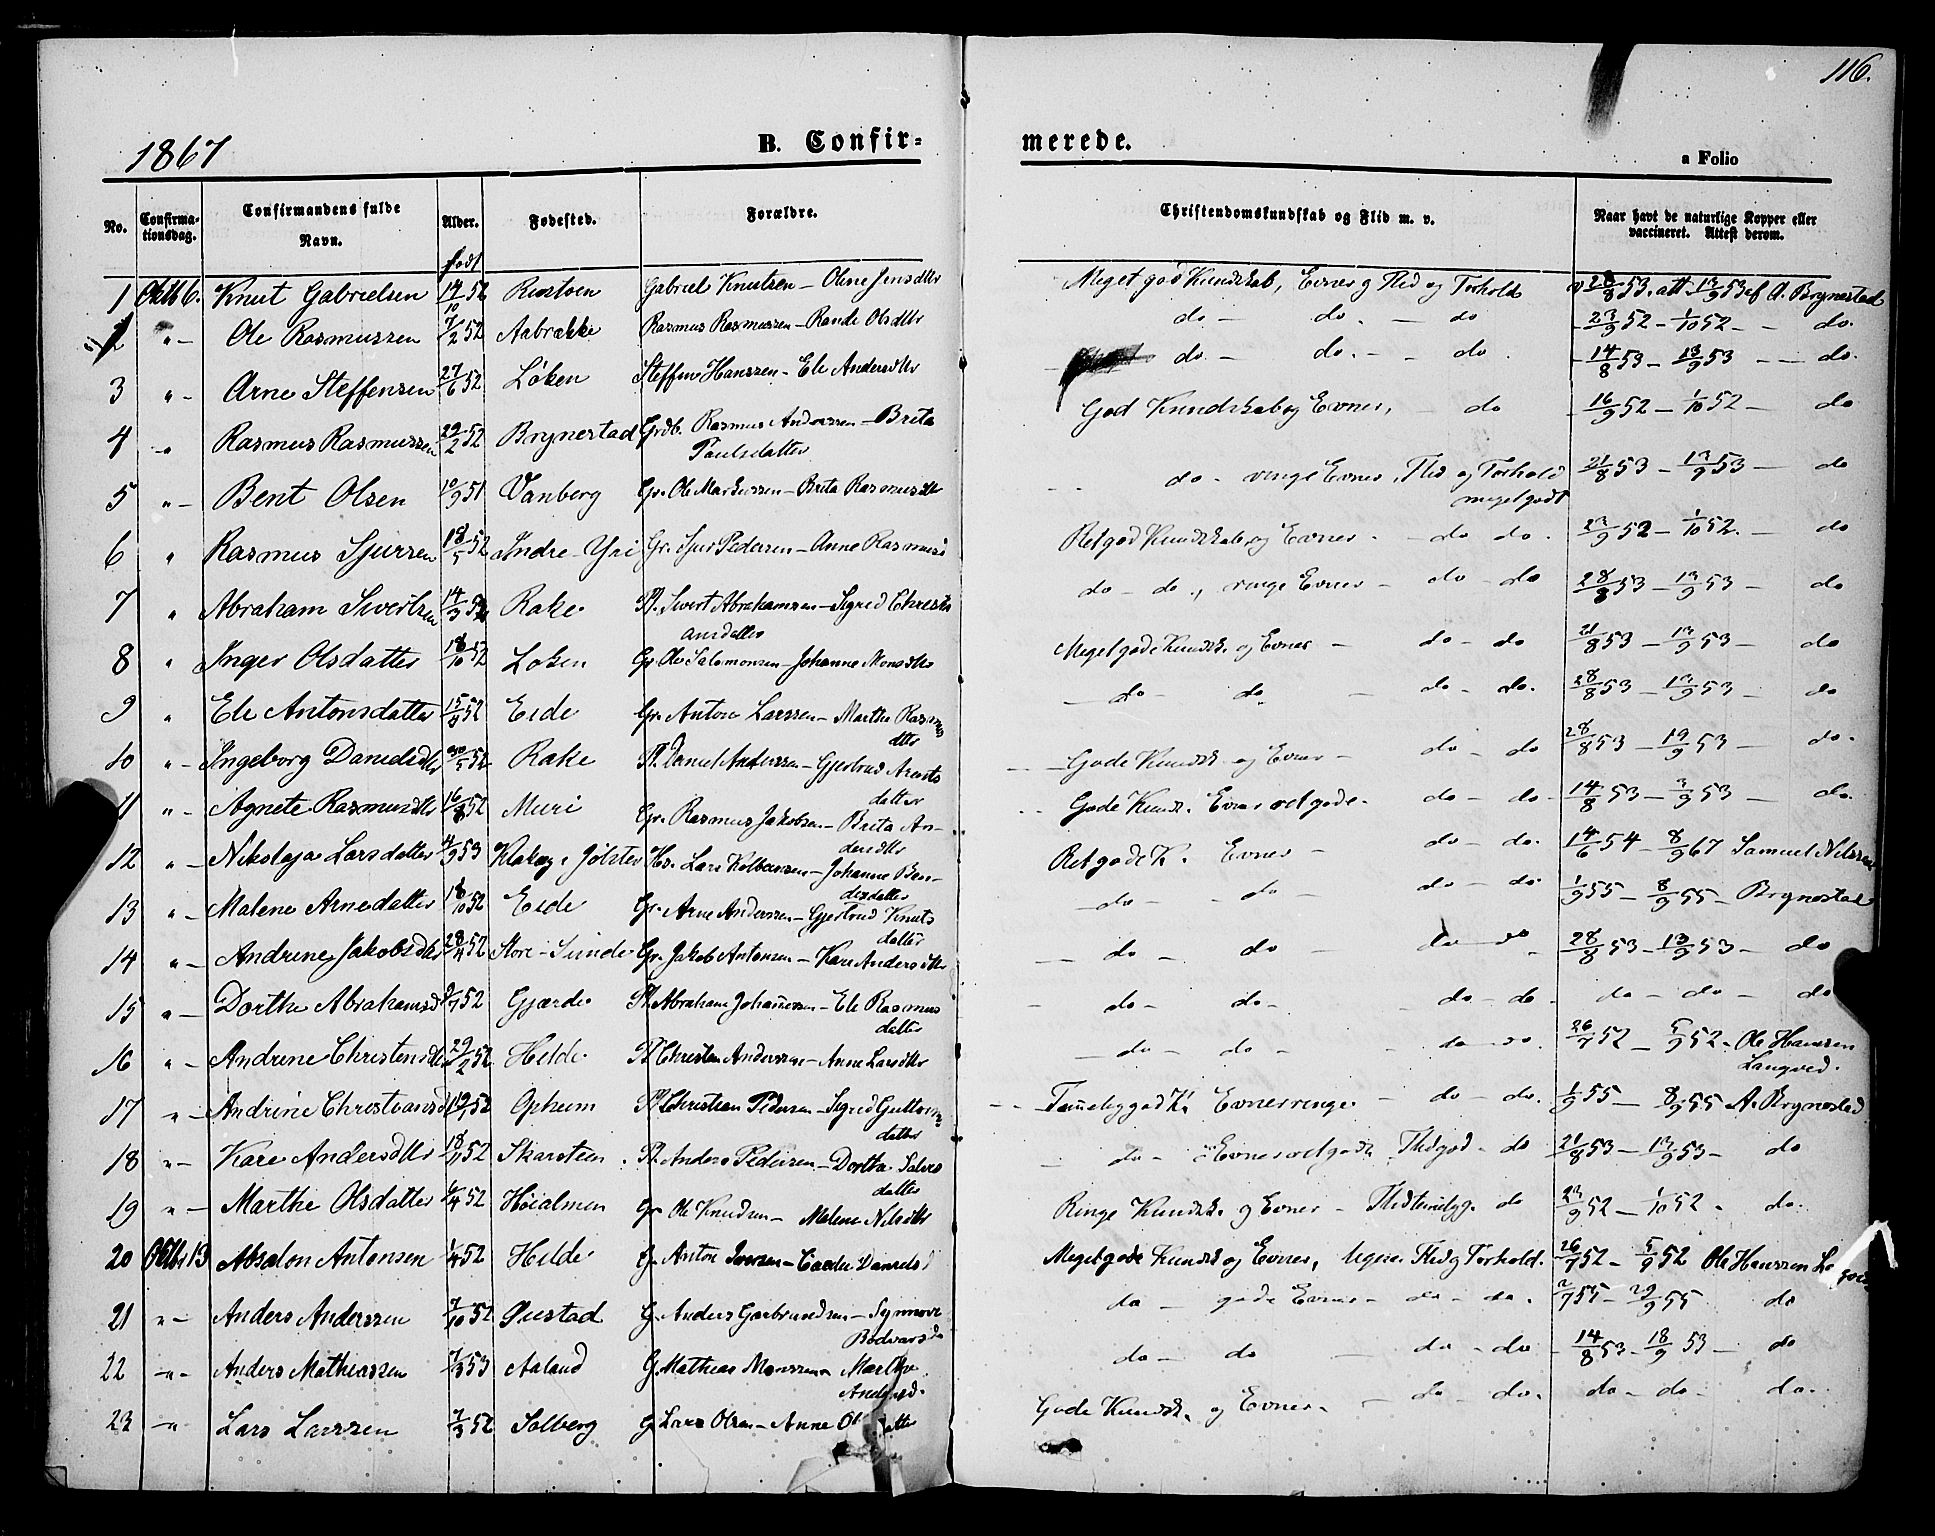 116.
1867 B. Confir- merede.
a Folio
No. Confirma-tionsdag. Confirmandens fulde Navn. Alder. Fødested. Forældre. Christendomskundskab og Flid m. v. Naar havt de naturlige Kopper eller vaccineret. Attest derom.
født
1 Oktb 6. Knut Gabrielsen 14/10 52 Gabriel Knutsen – Oline Jensdttr Meget god Kundskab, Evner g Flid og Forhold 28/8 53. att. 13/9 53 af A. Brynestad
2 "– Ole Rasmussen 7/2 52 Aabrække Rasmus Rasmussen – Rande Olsdttr do – do. – do 23/9 52 – 1/10 52 – – do.
3 "– Arne Steffensen 27/6 52 Løken Steffen Hanssen – Ele Andersdttr do. – do. – – do. – 14/8 53 – 13/9 53 – – do.
4 –" Rasmus Rasmussen 29/2 52 Brynestad Grdb. Rasmus Anderssen – Brita God Kundskab og Evner, – do 16/9 52 – 1/10 52 – do
Paulsdatter
5 "– Bent Olsen 10/9 51 Vanberg Gr. Ole Markussen – Brita Rasmusdtr do – ringe Evner, Flid og Forhold 21/8 53 – 13/9 53 – do
meget godt
6 " Rasmus Sjurssen 18/5 52 Indre-Yri Gr. Sjur Pedersen – Anne Rasmusd Ret god Kundskab og Evner – do do. 23/9 52 – 1/10 52. – do
7 " Abraham Sivertsen 14/3 52 Rake Pl. Sivert Abrahamsen – Sigrid Christi do – do., ringe Evner – do – do 28/8 53 – 13/9 53 – do
ansdatter
8 " Inger Olsdatter 18/10 52 Løken Gr. Ole Salomonsen – Johanne Monsdttr Meget gode Kundsk. og Evner – do – do 21/8 53 – 13/9 53 – do
9 " Ele Antonsdatter 15/8 52 Eide Gr. Anton Larssen – Marthe Rasmus – do – do – do – do. 28/8 53 – 13/9 53 – do
dttr
10 "– Ingeborg Danielsdttr 30/5 52 Rake Pl. Daniel Anderssen – Gjertrud Arents Gode Kundsk. og Evner – do – do 28/8 53 – 19/9 53 – do.
datter
11 "– Agnete Rasmusdttr 16/8 52 Muri Gr. Rasmus Jakobsen – Brita An- Gode Kundsk. Evner ret gode. do – do – 14/8 53 – 3/9 53 – do.
dersdttr
12 "– Nikolaja Larsdatter 4/9 53 Klakeg i Jølster Hr. Lars Kolbeinsen – Johanne Ben- Ret gode K. Evner – do – do. 14/6 54 – 8/9 67 Samuel Nilssen
dixdatter
13 "– Malene Arnedatter 18/10 52 Eide Gr. Arne Anderssen – Gjertrud Knuts – do – – do – do – do 1/9 55 – 8/9 55 – Brynestad
datter
14 "– Andrine Jakobsdttr 28/4 52 Store-Sunde Gr. Jakob Antonsen – Kari Andersdttr – do – do – do – do 28/8 53 – 13/9 53 – do
15 "– Dorthe Abrahamsd 9/7 52 Gjærde Pl. Abraham Johannessen – Ele Rasmus – do – do – do – do – do – do – do
datter
16 "– Andrine Christensdttr 29/2 52 Helde Pl Christen Anderssen – Anne Larsdttr – do – do – do – do. 26/7 52 – 5/9 52. Ole Hanssen
Langved.
17 "– Andrine Christiansd 19/1 52 Opheim Pl Christian Pedersen – Sigrid Guttorms Temelig god K. Evner ringe – do – do. 1/9 55 – 8/9 55 A. Brynestad
datter
18 "– Kari Andersdttr 18/11 52 Skarsteen. Pl. Anders Pedersen – Dorthe Salves – do – Evner ret gode Flid god – do 21/8 53 – 13/9 53 – do
datter
19 "– Marthe Olsdatter 6/4 52 Høialmen Gr Ole Knudsen – Malene Nilsdttr Ringe Kundsk. og Evner – Flid temelig. do 23/9 52 – 1/10 52 – do.
20 Oktbr 13 Absalon Antonsen 1/4 52 Helde G. Anton Iversen – Danielsd Meget gode Kundsk og Evner, Flid g Forhold. 26/7 52 – 5/9 52 Ole Hanssen
21 "– Anders Anderssen 7/10 52 G. Anders Garbrandsen – Synnove do – gode Evner – do – do. 2/7 55 – 29/9 55 do
Bødvarsda
22 –"– Anders Mathiassen 7/3 53 Aaland G. Mathias Monssen – Marthe do – do – do – do – 14/8 53 – 18/9 53 – do
Andersd.
23 –"– Lars Larssen 7/3 52 Solberg G Lars Olsen – Anne Ol datter Gode Kundsk. og Evner. – do – do. do – do – do.